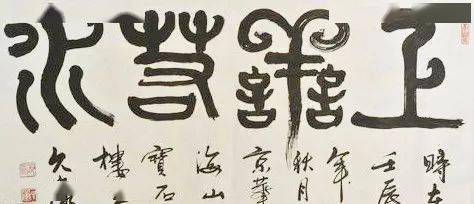 上善若水
時在
壬辰
年
秋月
京華
海山
寶石
樓
久